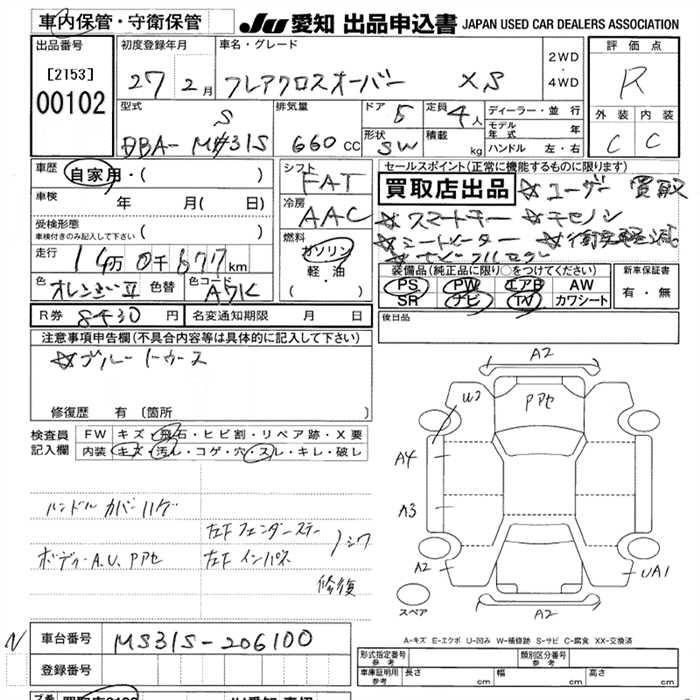 車内保管・守衛保管
JU 愛知 出品申込書 JAPAN USED CAR DEALERS ASSOCIATION
出品番号 初度登録年月 車名・グレード 評価点
[2153] 27年 2月 フレアクロスオーバー XS 2WD・4WD R
00102 型式 排気量 ドア 5 定員 4人 ディーラー・並行 外装 内装
モデル年式 年
DBA-MS31S 660cc 形状 SW 積載 kg ハンドル 左・右 C C
車歴 自家用・( ) シフト FAT セールスポイント(正常に機能するものに限ります)
車検 年 月( 日) 冷房 AAC 買取店出品 ☆ユーザー買取
受検形態 ( ) ☆スマートキー
車検付きのみ記入して下さい 燃料 ☆シートヒーター ☆衝突軽減
走行 14万0千677km ガソリン・軽油・( )
装備品(純正品に限り○をつけてください) 新車保証書
色 オレンジⅡ 色替 色コード A9K PS PW エアB AW 有・無
SR ナビ TV カワシート
R券 8430円 名変通知期限 月 日 後日品
注意事項申告欄(不具合箇所等は具体的に記入して下さい)
☆ブルートゥース
修復歴 有 [箇所 ]
検査員記入欄 FW キズ・飛石・ヒビ割・リペア跡・X要
内装 キズ・汚レ・コゲ・穴・スレ・キレ・破レ
A2
U2 Pアセ
A4
A3
A2 UA1
A2
スペア
ハンドルカバーハゲ
左Fフェンダーステー
ボディーA.U.Pアセ 左Fインパネ シワ
修復
A-キズ E-エクボ U-凹み W-補修跡 S-サビ C-腐食 XX-交換済
N 車台番号 MS31S-206100
登録番号
形式指定番号 参考 類別区分番号 参考
車庫証明用 参考 長さ cm 幅 cm 高さ cm